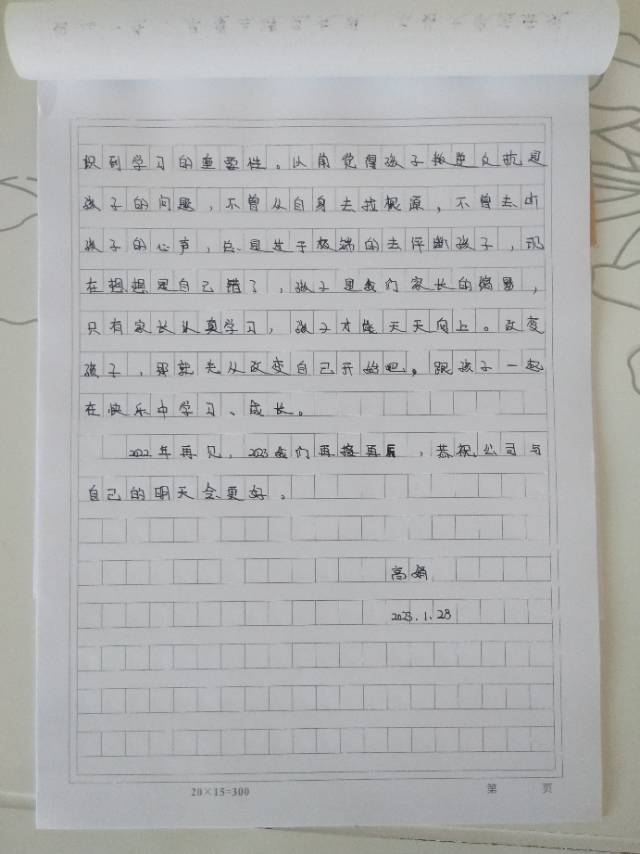 识到学习的重要性。以前觉得孩子叛逆反抗是
孩子的问题，不曾从自身去找根源，不曾去听
孩子的心声，总是过于极端的去评断孩子，现
在想想是自己错了，孩子是我们家长的
只有家长认真学习，孩子才能天天向上。改变
孩子，那就先从改变自己开始吧。跟孩子一起
在快乐中学习、成长。
2022年再见，2023我们再接再厉，恭祝公司与
自己的明天会更好。
高娟
2023.1.28
20×15=300
第 页